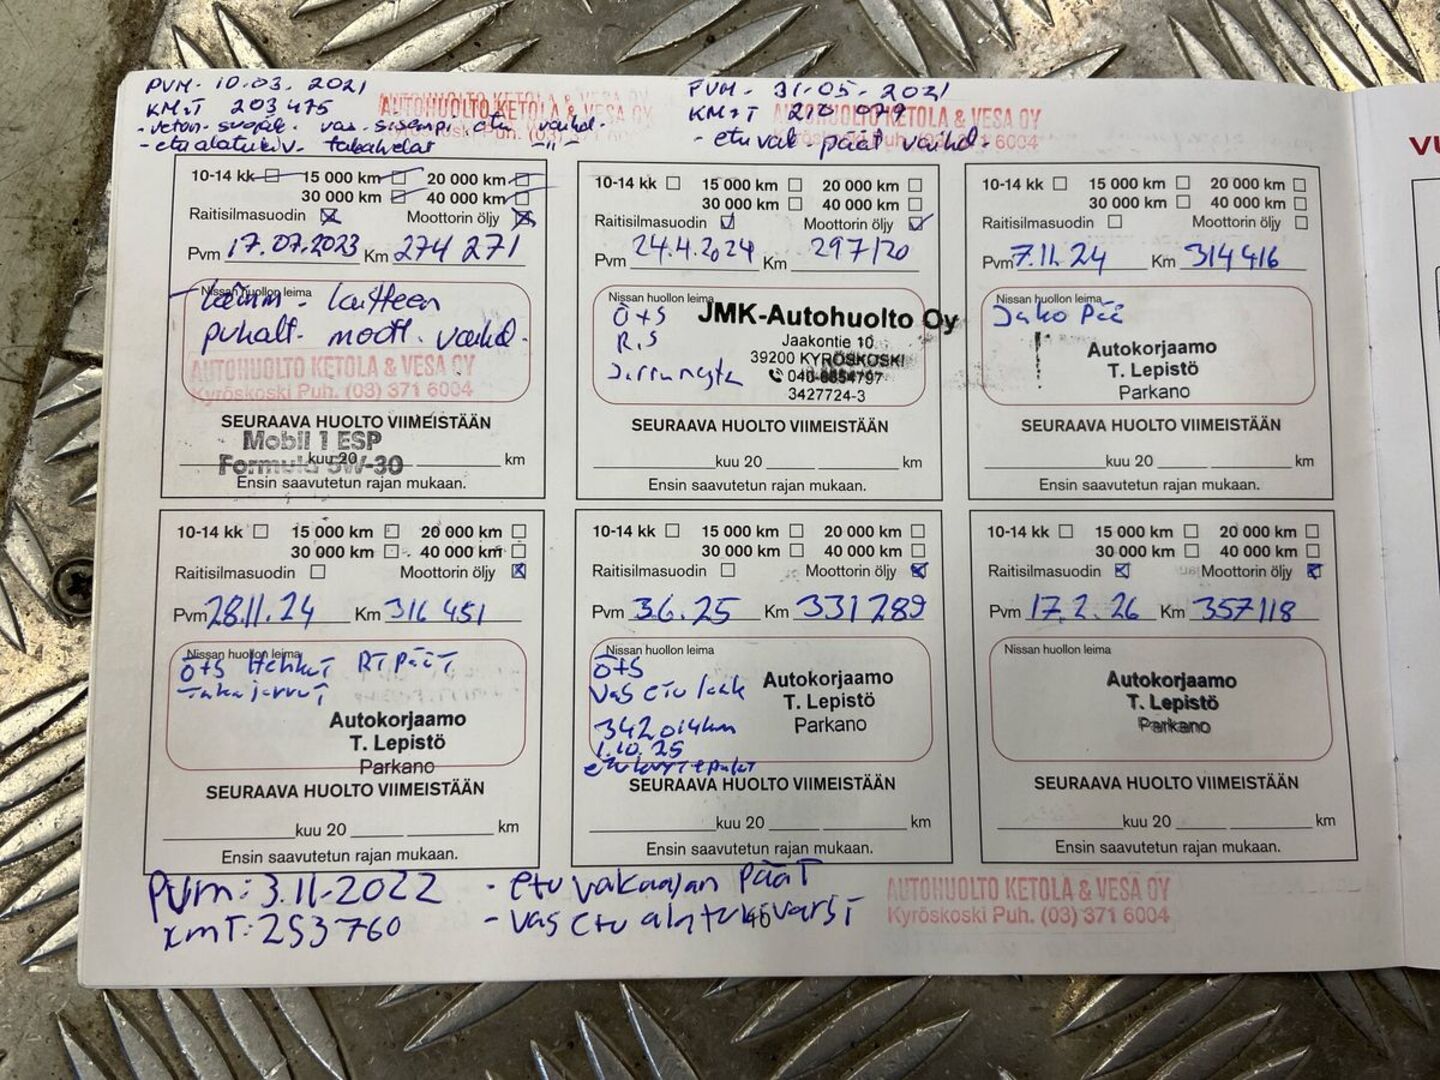 PVM. 10.03. 2021
KM:T 203 475
AUTOHUOLTO KETOLA & VESA OY
Kyröskoski Puh. (03)
- veton. suojak. vas. sisempi etu vaihd.
- etu alatukiv. takahelat -"-
PVM. 31.05. 2021
KM:T
AUTOHUOLTO KETOLA & VESA OY
6004
- etu vak. päät vaihd.
VU
10-14 kk 15 000 km 20 000 km
30 000 km 40 000 km
Raitisilmasuodin Moottorin öljy
Pvm 17.07.2023 Km 274 271
Nissan huollon leima
laitteen
puhalt. moott. vaihd.
AUTOHUOLTO KETOLA & VESA OY
Kyröskoski Puh. (03) 371 6004
SEURAAVA HUOLTO VIIMEISTÄÄN
Mobil 1 ESP
kuu 20 km
Formula 5W-30
Ensin saavutetun rajan mukaan.
10-14 kk 15 000 km 20 000 km
30 000 km 40 000 km
Raitisilmasuodin Moottorin öljy
Pvm 24.4.2024 Km 297120
Nissan huollon leima
Ö+S
R.S
Jarruneste
JMK-Autohuolto Oy
Jaakontie 10
39200 KYRÖSKOSKI
040-6854797
3427724-3
SEURAAVA HUOLTO VIIMEISTÄÄN
kuu 20 km
Ensin saavutetun rajan mukaan.
10-14 kk 15 000 km 20 000 km
30 000 km 40 000 km
Raitisilmasuodin Moottorin öljy
Pvm 7.11.24 Km 314416
Nissan huollon leima
Jako Pää
Autokorjaamo
T. Lepistö
Parkano
SEURAAVA HUOLTO VIIMEISTÄÄN
kuu 20 km
Ensin saavutetun rajan mukaan.
10-14 kk 15 000 km 20 000 km
30 000 km 40 000 km
Raitisilmasuodin Moottorin öljy
Pvm 28.11.24 Km 316 451
Nissan huollon leima
Ö+S Hehkut RT Päät
Takajarrut
Autokorjaamo
T. Lepistö
Parkano
SEURAAVA HUOLTO VIIMEISTÄÄN
kuu 20 km
Ensin saavutetun rajan mukaan.
10-14 kk 15 000 km 20 000 km
30 000 km 40 000 km
Raitisilmasuodin Moottorin öljy
Pvm 3.6.25 Km 331289
Nissan huollon leima
Ö+S
Vas etu laak
342014km
1.10.25
Autokorjaamo
T. Lepistö
Parkano
SEURAAVA HUOLTO VIIMEISTÄÄN
kuu 20 km
Ensin saavutetun rajan mukaan.
10-14 kk 15 000 km 20 000 km
30 000 km 40 000 km
Raitisilmasuodin Moottorin öljy
Pvm 17.2.26 Km 357118
Nissan huollon leima
Autokorjaamo
T. Lepistö
Parkano
SEURAAVA HUOLTO VIIMEISTÄÄN
kuu 20 km
Ensin saavutetun rajan mukaan.
Pvm: 3.11-2022
KmT: 253760
- etu vakaajan päät
- vas etu alatukivarsi
40
AUTOHUOLTO KETOLA & VESA OY
Kyröskoski Puh. (03) 371 6004